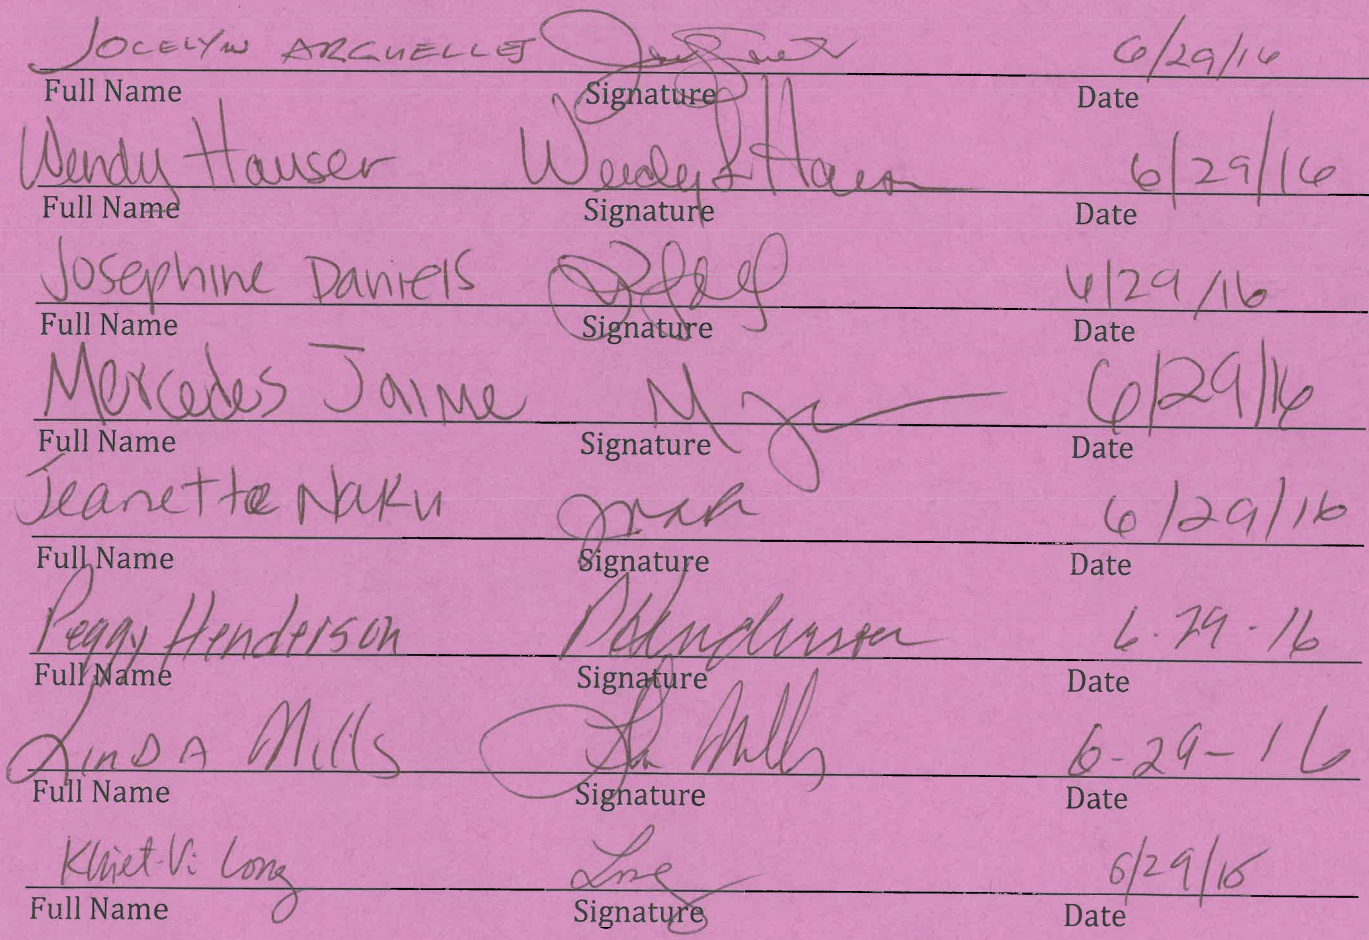 JOCELYN ARGUELLES 6/29/16
Full Name Signature Date
Wendy Hauser Wendy L Haus 6/29/16
Full Name Signature Date
Josephine Daniels 6/29/16
Full Name Signature Date
Mercedes Jaime M J 6/29/16
Full Name Signature Date
Jeanette Naku 6/29/16
Full Name Signature Date
Peggy Henderson PHenderson 6-29-16
Full Name Signature Date
LINDA Mills Mills 6-29-16
Full Name Signature Date
Khiet-Vi Long Long 6/29/16
Full Name Signature Date